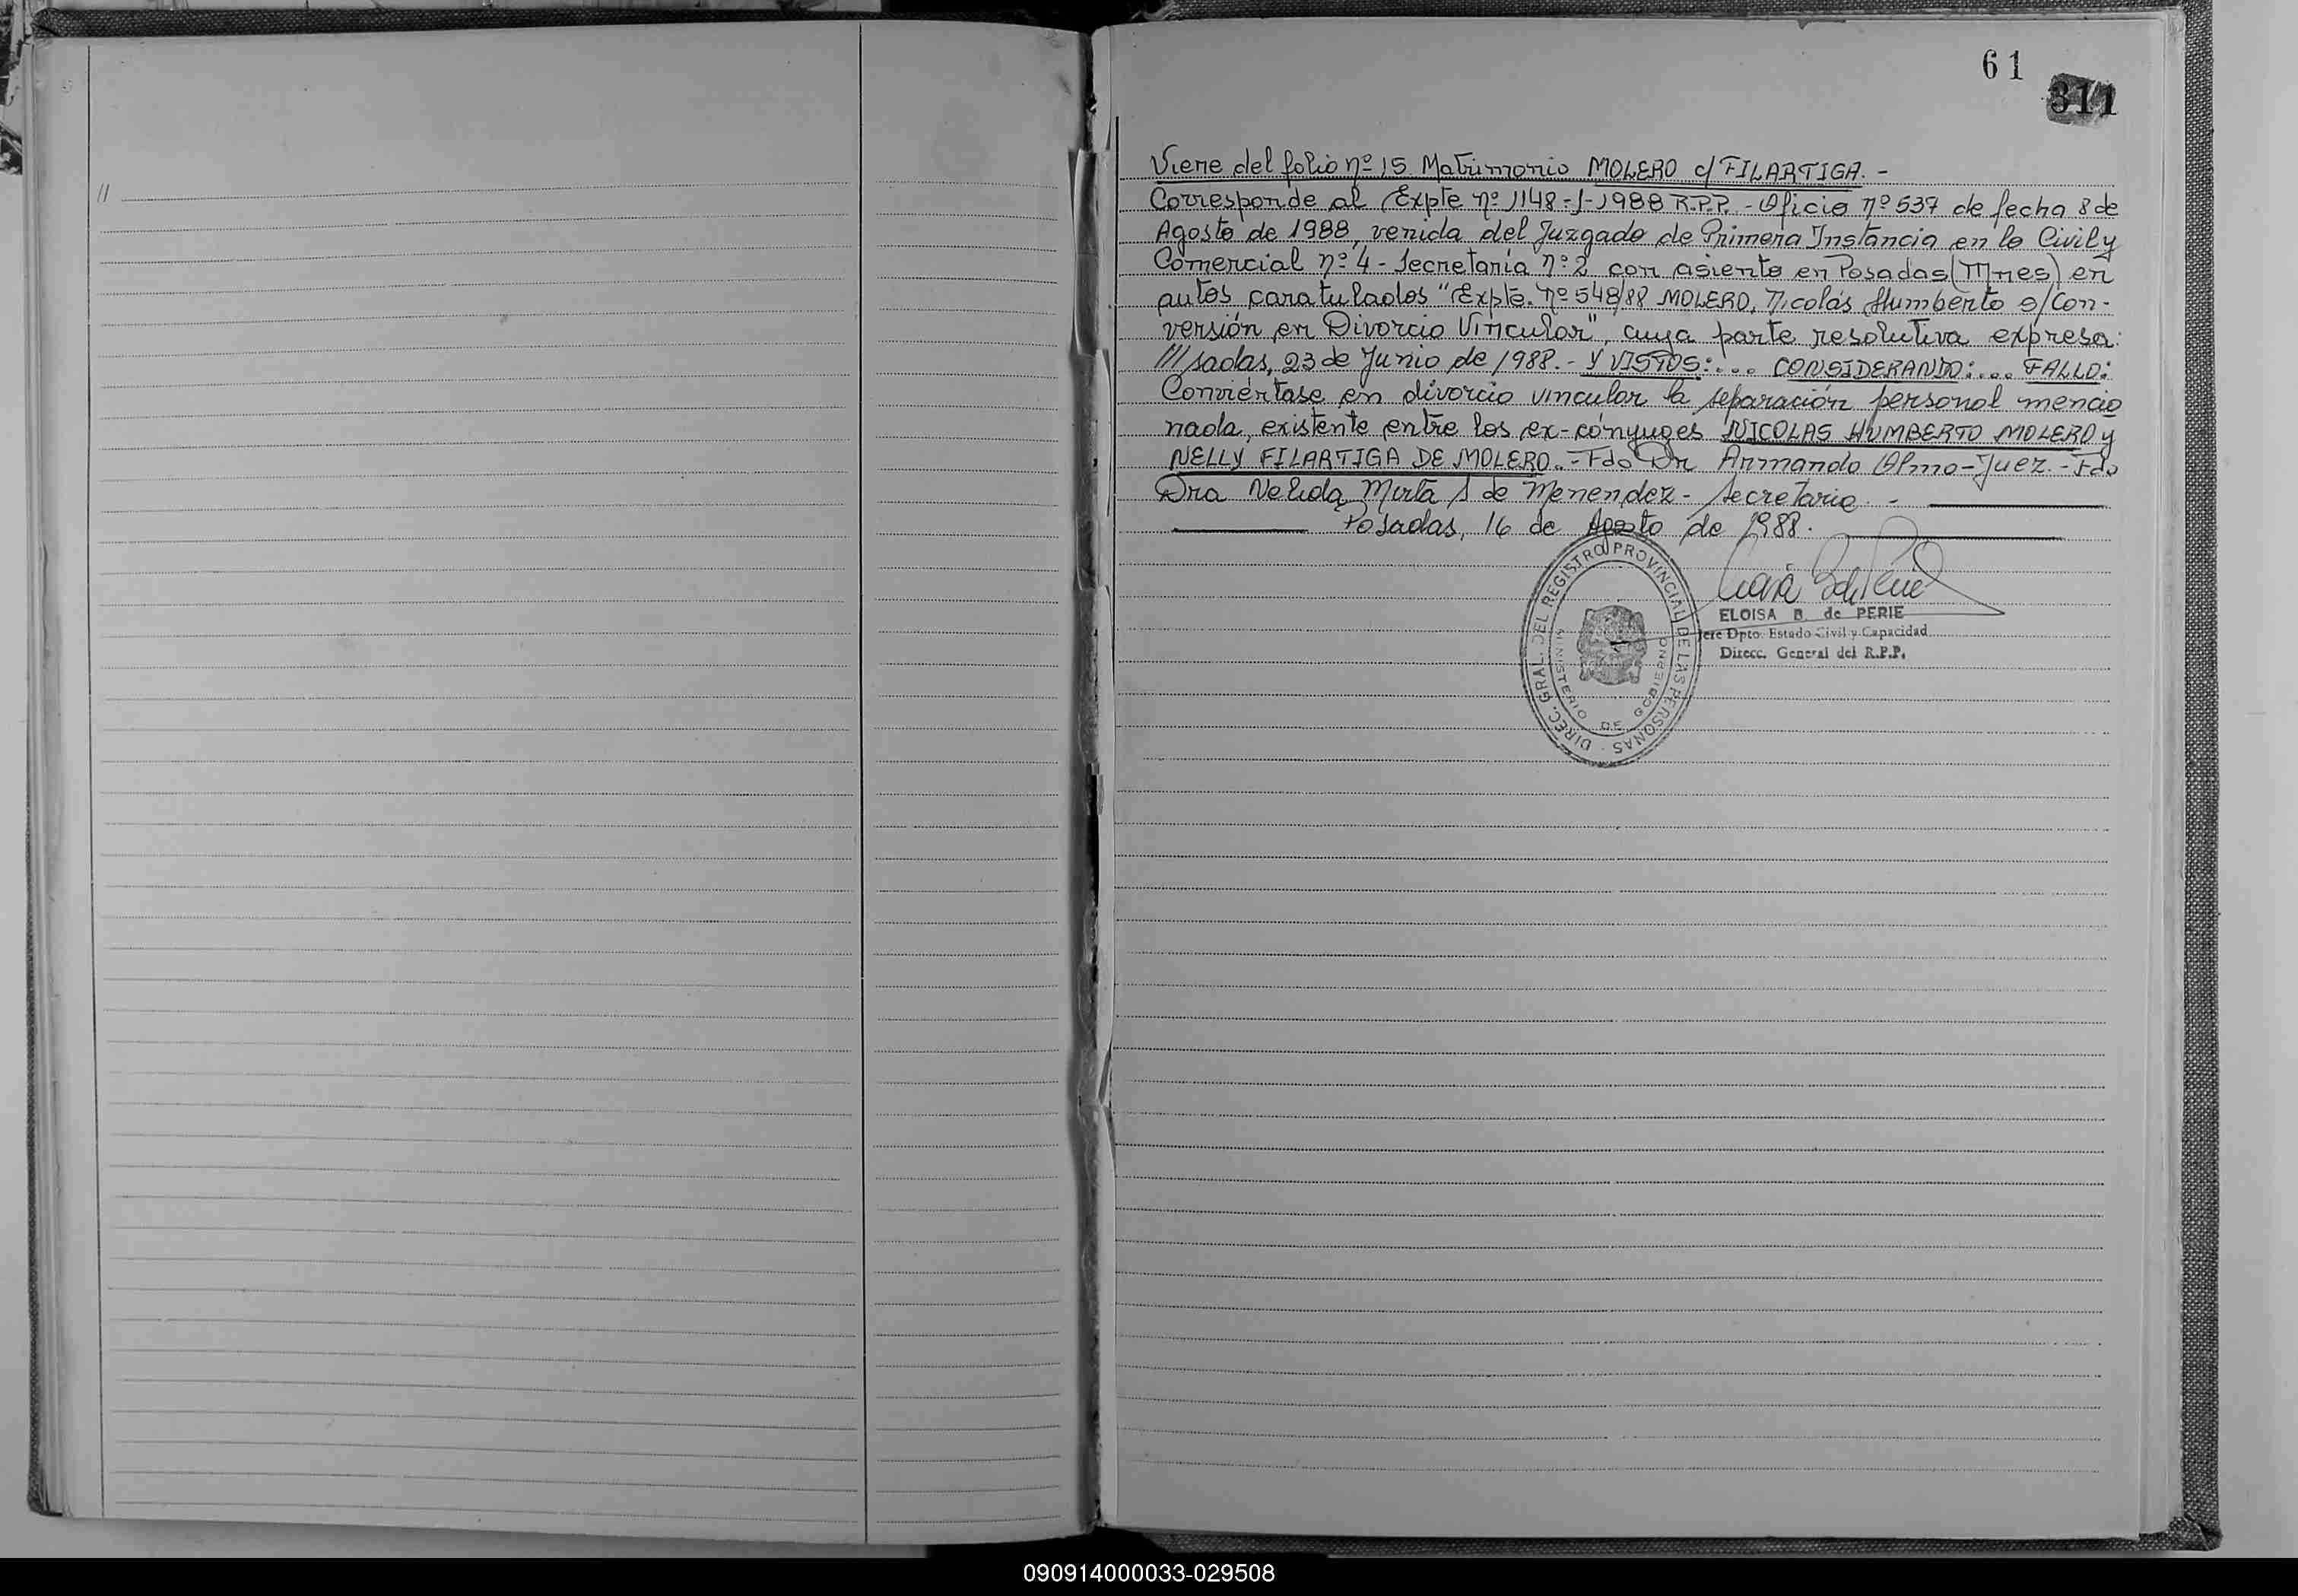 //
61
311
Viene del folio nº 15 Matrimonio MOLERO c/ FILARTIGA.-
Corresponde al Expte nº 1148-J-1988 R.P.P. - Oficio nº 537 de fecha 8 de
Agosto de 1988, venida del Juzgado de Primera Instancia en lo Civil y
Comercial nº 4 - Secretaría nº 2 con asiento en Posadas (Mnes) en
autos caratulados "Expte. nº 548/88 MOLERO, Nicolás Humberto s/Con-
versión en Divorcio Vincular", cuya parte resolutiva expresa:
///sadas, 23 de Junio de 1988.- Y VISTOS:... CONSIDERANDO:... FALLO:
Conviértase en divorcio vincular la separación personal mencio
nada, existente entre los ex-cónyuges NICOLAS HUMBERTO MOLERO y
NELLY FILARTIGA DE MOLERO.- Fdo Dr Armando Olmo - Juez.- Fdo
Dra Nelida Mirta S de Menendez - Secretaria. -
Posadas, 16 de Agosto de 1988.
DIREC. GRAL. DEL REGISTRO PROVINCIAL DE LAS PERSONAS
MINISTERIO DE GOBIERNO
ELOISA B. de PERIE
Jefe Dpto. Estado Civil y Capacidad
Direcc. General del R.P.P.
090914000033-029508